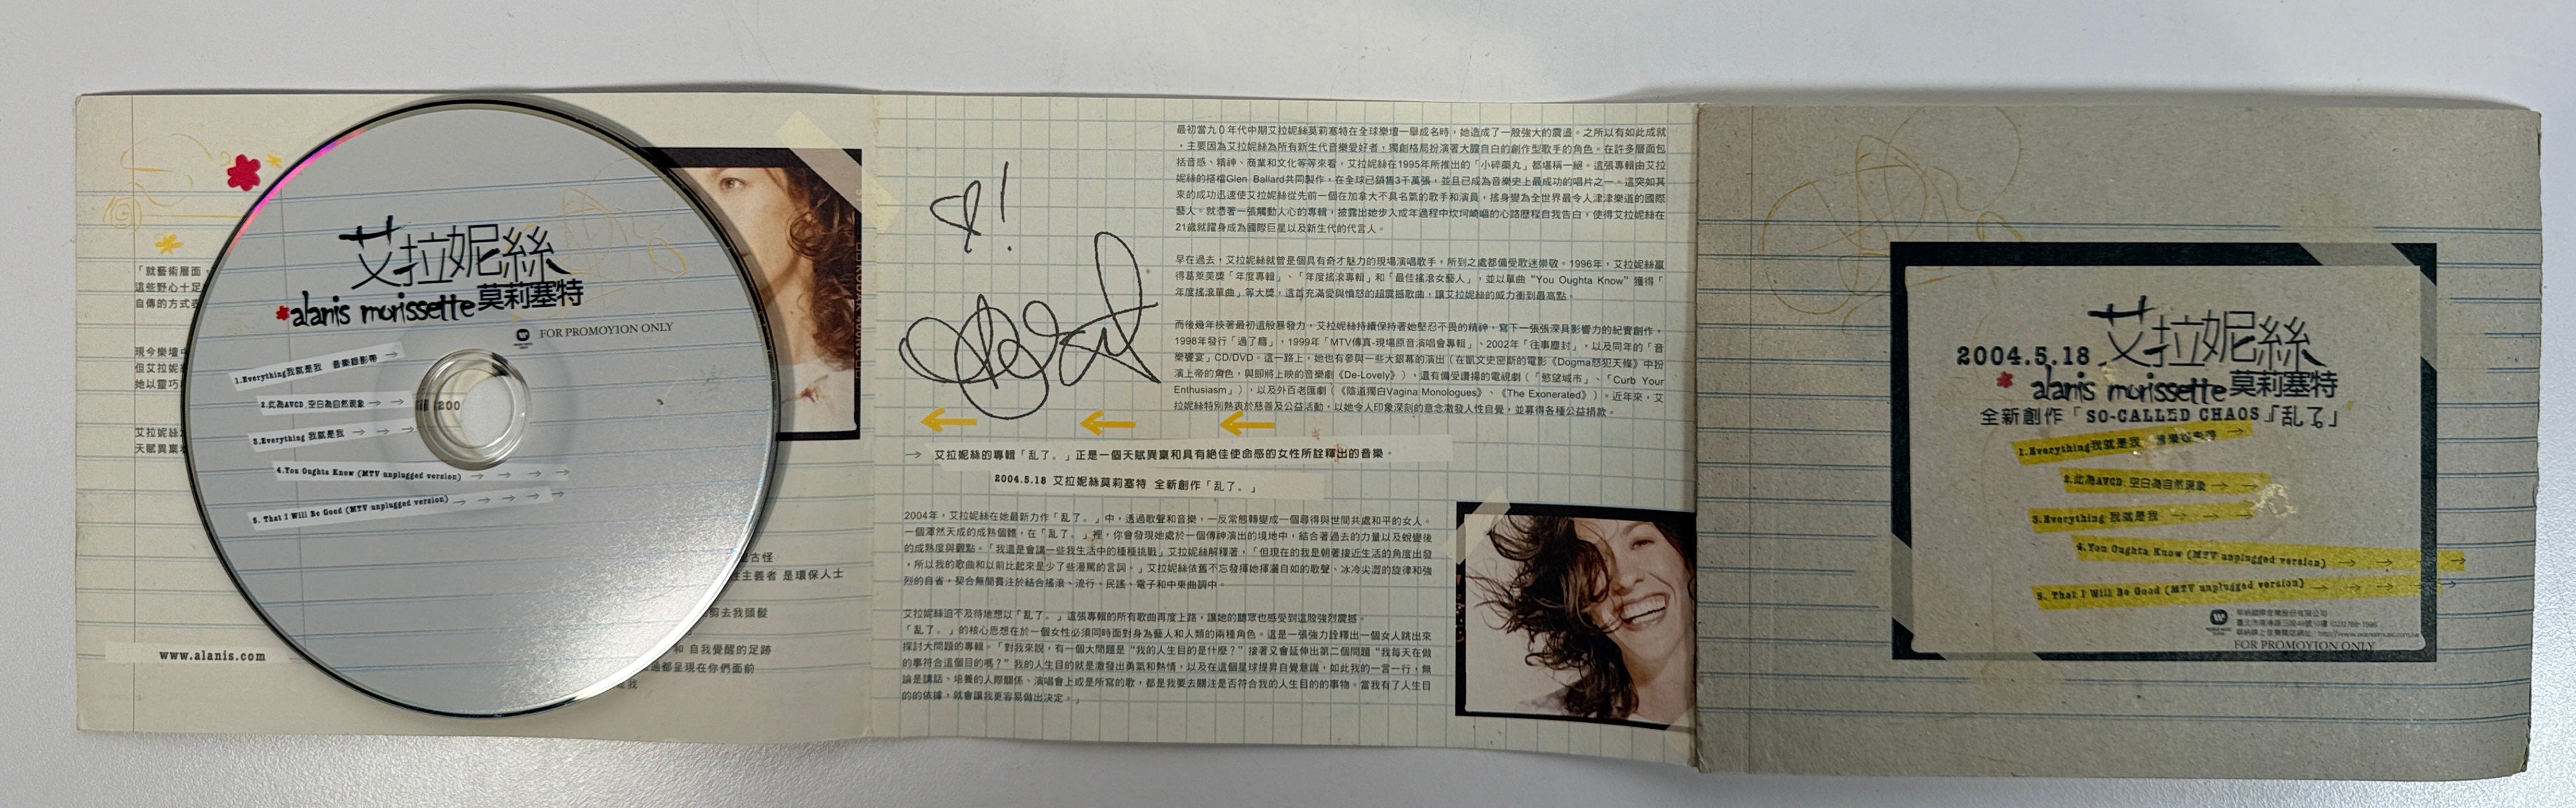 「就藝術層面，
這些野心十足
自傳的方式表
現今樂壇中
但艾拉妮絲
她以靈巧
艾拉妮絲
天賦異稟
古怪
主義者 是環保人士
剪去我頭髮
和 自我覺醒的足跡
過都呈現在你們面前
是我
www.alanis.com
艾拉妮絲
alanis morissette 莫莉塞特
FOR PROMOYION ONLY
1.Everything我就是我 音樂錄影帶 →
2.此為AVCD,空白為自然現象 → →
200
3.Everything 我就是我 → → →
4.You Oughta Know (MTV unplugged version) → → →
5. That I Will Be Good (MTV unplugged version) → → → → →
最初當九0年代中期艾拉妮絲莫莉塞特在全球樂壇一舉成名時，她造成了一股強大的震盪。之所以有如此成就
，主要因為艾拉妮絲為所有新生代音樂愛好者，獨創格局扮演著大膽自白的創作型歌手的角色。在許多層面包
括音感、精神、商業和文化等等來看，艾拉妮絲在1995年所推出的「小碎藥丸」都堪稱一絕。這張專輯由艾拉
妮絲的搭檔Glen Ballard共同製作，在全球已銷售3千萬張，並且已成為音樂史上最成功的唱片之一。這突如其
來的成功迅速使艾拉妮絲從先前一個在加拿大不具名氣的歌手和演員，搖身變為全世界最令人津津樂道的國際
藝人。就憑著一張觸動人心的專輯，披露出她步入成年過程中坎坷崎嶇的心路歷程自我告白，使得艾拉妮絲在
21歲就躍身成為國際巨星以及新生代的代言人。
早在過去，艾拉妮絲就曾是個具有奇才魅力的現場演唱歌手，所到之處都備受歌迷崇敬。1996年，艾拉妮絲贏
得葛萊美獎「年度專輯」、「年度搖滾專輯」和「最佳搖滾女藝人」，並以單曲 “You Oughta Know” 獲得「
年度搖滾單曲」等大獎，這首充滿愛與憤怒的超震撼歌曲，讓艾拉妮絲的威力衝到最高點。
而後幾年挾著最初這股暴發力，艾拉妮絲持續保持著她堅忍不畏的精神，寫下一張張深具影響力的紀實創作，
1998年發行「過了癮」，1999年「MTV傳真-現場原音演唱會專輯」、2002年「往事塵封」，以及同年的「音
樂饗宴」CD/DVD。這一路上，她也有參與一些大銀幕的演出（在凱文史密斯的電影《Dogma怒犯天條》中扮
演上帝的角色，與即將上映的音樂劇《De-Lovely》），還有備受讚揚的電視劇（「慾望城市」、「Curb Your
Enthusiasm」），以及外百老匯劇（《陰道獨白Vagina Monologues》、《The Exonerated》）。近年來，艾
拉妮絲特別熱衷於慈善及公益活動，以她令人印象深刻的意念激發人性自覺，並募得各種公益捐款。
→ 艾拉妮絲的專輯「乱了。」正是一個天賦異稟和具有絕佳使命感的女性所詮釋出的音樂。
2004.5.18 艾拉妮絲莫莉塞特 全新創作「乱了。」
2004年，艾拉妮絲在她最新力作「乱了。」中，透過歌聲和音樂，一反常態轉變成一個尋得與世間共處和平的女人。
一個渾然天成的成熟個體，在「乱了。」裡，你會發現她處於一個傳神演出的境地中，結合著過去的力量以及蛻變後
的成熟度與觀點。「我還是會講一些我生活中的種種挑戰」艾拉妮絲解釋著，「但現在的我是朝著接近生活的角度出發
，所以我的歌曲和以前比起來是少了些漫罵的言詞。」艾拉妮絲依舊不忘發揮她揮灑自如的歌聲、冰冷尖澀的旋律和強
烈的自省，契合無間貫注於結合搖滾、流行、民謠、電子和中東曲調中。
艾拉妮絲迫不及待地想以「乱了。」這張專輯的所有歌曲再度上路，讓她的聽眾也感受到這股強烈震撼。
「乱了。」的核心思想在於一個女性必須同時面對身為藝人和人類的兩種角色。這是一張強力詮釋出一個女人跳出來
探討大問題的專輯。「對我來說，有一個大問題是 “我的人生目的是什麼？” 接著又會延伸出第二個問題 “我每天在做
的事符合這個目的嗎？” 我的人生目的就是激發出勇氣和熱情，以及在這個星球提昇自覺意識，如此我的一言一行，無
論是講話、培養的人際關係、演唱會上或是所寫的歌，都是我要去關注是否符合我的人生目的的事物。當我有了人生目
的的依據，就會讓我更容易做出決定。」
2004.5.18 艾拉妮絲
alanis morissette 莫莉塞特
全新創作「SO-CALLED CHAOS」「乱了。」
1.Everything我就是我 音樂錄影帶 →
2.此為AVCD,空白為自然現象 → →
3.Everything 我就是我 → → →
4.You Oughta Know (MTV unplugged version) → → →
5. That I Will Be Good (MTV unplugged version) → → → → →
華納國際音樂股份有限公司
FOR PROMOYION ONLY